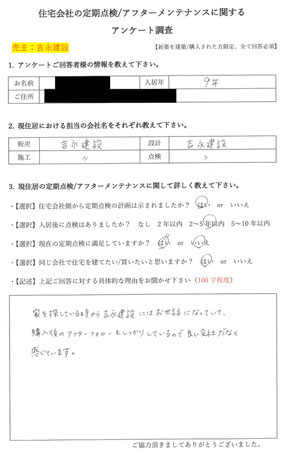 住宅会社の定期点検/アフターメンテナンスに関する
アンケート調査
売主：吉永建設
【新築を建築/購入された方限定、全て回答必須】
1. アンケートご回答者様の情報を教えて下さい。
お名前 入居年 9年
ご住所
2. 現住居における担当の会社名をそれぞれ教えて下さい。
販売 吉永建設 設計 吉永建設
施工 〃 点検 〃
3. 現住居の定期点検/アフターメンテナンスに関して詳しく教えて下さい。
・【選択】住宅会社側から定期点検の計画は示されましたか？ はい or いいえ
・【選択】入居後に点検はありましたか？ なし 2年以内 2〜5年以内 5〜10年以内
・【選択】現在の定期点検に満足していますか？ はい or いいえ
・【選択】同じ会社で住宅を建てたい/買いたいと思いますか？ はい or いいえ
・【記述】上記ご回答に対する具体的な理由をお聞かせ下さい（100字程度）
家を探している時から吉永建設にはお世話になっていて、
購入後のアフターフォローもしっかりしているので良い会社だなと
感じています。
ご協力頂きましてありがとうございました。